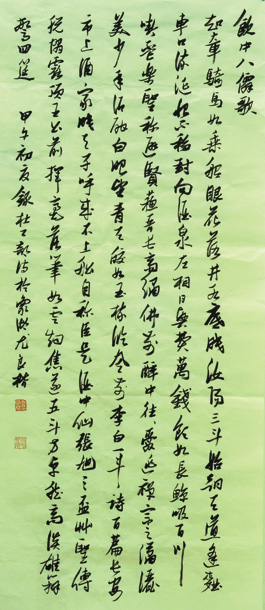 飲中八僊歌
知章騎馬如乘船眼花落井水底眠汝陽三斗始朝天道逢麴
車口流涎恨不移封向酒泉左相日興費萬錢飲如長鯨吸百川
銜盃樂聖稱避賢蘇晉長齋繡佛前醉中往往愛逃禪宗之瀟灑
美少年舉觴白眼望青天皎如玉樹臨風前李白一斗詩百篇長安
市上酒家眠天子呼來不上船自稱臣是酒中仙張旭三盃艸聖傳
脫帽露頂王公前揮毫落筆如雲烟焦遂五斗方卓然高談雄辯
驚四筵 甲午初夏錄杜工部詩於